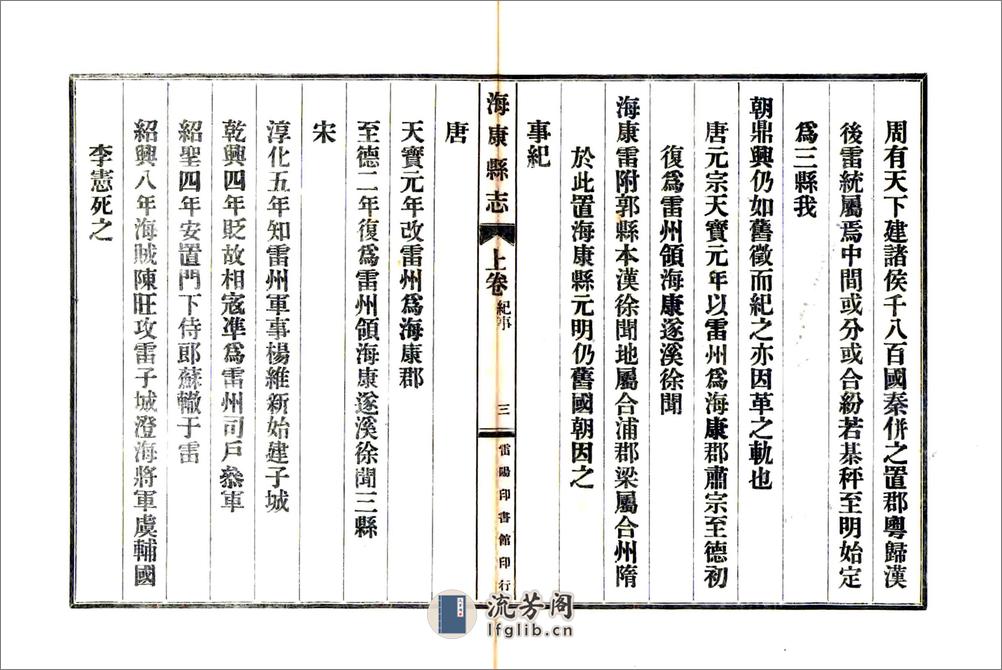 周有天下建諸侯千八百國秦併之置郡粵歸漢
後雷統屬焉中間或分或合紛若棊秤至明始定
爲三縣我
朝鼎興仍如舊徵而紀之亦因革之軌也
唐元宗天寶元年以雷州爲海康郡肅宗至德初
復爲雷州領海康遂溪徐聞
海康雷附郭縣本漢徐聞地屬合浦郡梁屬合州隋
於此置海康縣元明仍舊國朝因之
事紀
海康縣志
上卷
紀事
三
雷陽印書館印行
唐
天寶元年改雷州爲海康郡
至德二年復爲雷州領海康遂溪徐聞三縣
宋
淳化五年知雷州軍事楊維新始建子城
乾興四年貶故相寇凖爲雷州司戶叅軍
紹聖四年安置門下侍郎蘇轍于雷
紹興八年海賊陳旺攻雷子城澄海將軍虞輔國
李憲死之
流芳阁
lfglib.cn